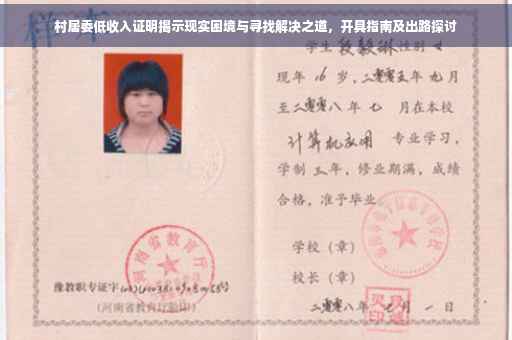 村居委低收入证明揭示现实困境与寻找解决之道，开具指南及出路探讨
样本
学生段毅琳性别女
现年16岁，二零零五年九月
至二零零八年七月在本校
计算机应用 专业学习，
学制三年，修业期满，成绩
合格，准予毕业
学校（章）
校长（章）
二零零八年七月一日
河南省教育厅
豫教职专证字
（河南省教育厅验印）